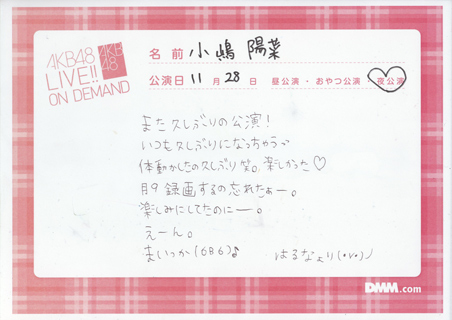 AKB48
LIVE!!
ON DEMAND
AKB
48
名前 小嶋 陽菜
公演日 11月 28日 昼公演・おやつ公演・夜公演
また久しぶりの公演!
いつも久しぶりになっちゃうっ
体動かしたの久しぶり笑。楽しかった♡
月9 録画するの忘れたぁー。
楽しみにしてたのにー。
えーん。
まいっか(686)♪
はるなぁり(•v•)ノ
DMM.com